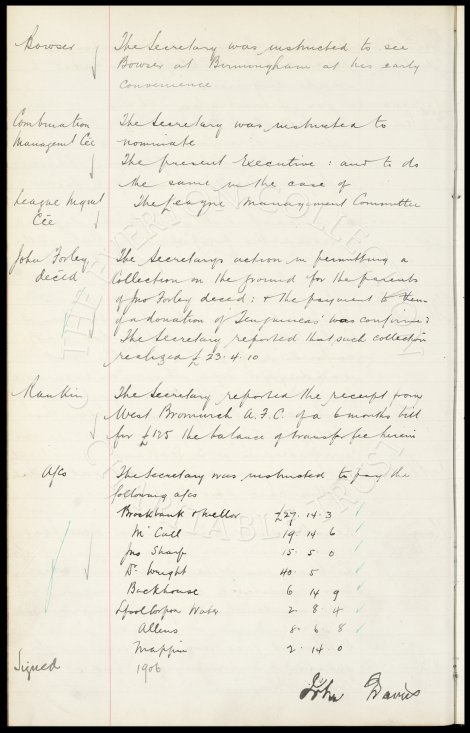 Bowser The Secretary was instructed to see
Bowser at Birmingham at his early
convenience
Combination The Secretary was instructed to
Managemt Cée nominate
The present Executive : and to do
the same in the case of
League Mgmt The League Management Committee
Cée
John Forley The Secretary's action in permitting a
decéd collection on the ground for the parents
of Jno Forley decéd : & the payment to them
of a donation of Ten guineas was confirmed
The Secretary reported that such collection
realized £23.4.10
Rankin The Secretary reported the receipt from
West Bromwich A.F.C. of a 6 months bill
for £125 the balance of transfer fee herein
A/cs The Secretary was instructed to pay the
following a/cs
Brockbank & Mellor £27.14.3
McCall 19.14.6
Jno Sharp 15.5.0
Dr Wright 40.5
Backhouse 6.14.9
Lpool Corpon Water 2.8.4
Allens 8.6.8
Mappin 2.14.0
Signed 1906
John Davies
THE EVERTON COLLECTION
CHARITABLE TRUST